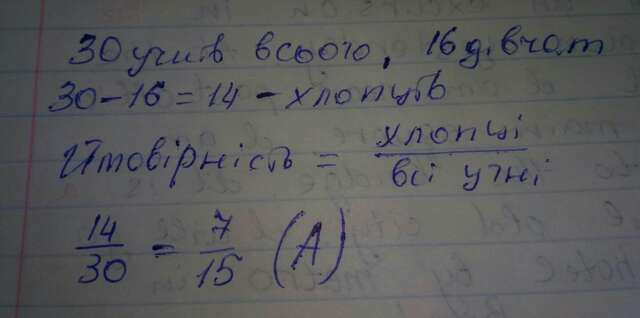 30 учнів всього, 16 дівчат
30 - 16 = 14 - хлопців
Ймовірність = хлопці / всі учні
14/30 = 7/15 (А)